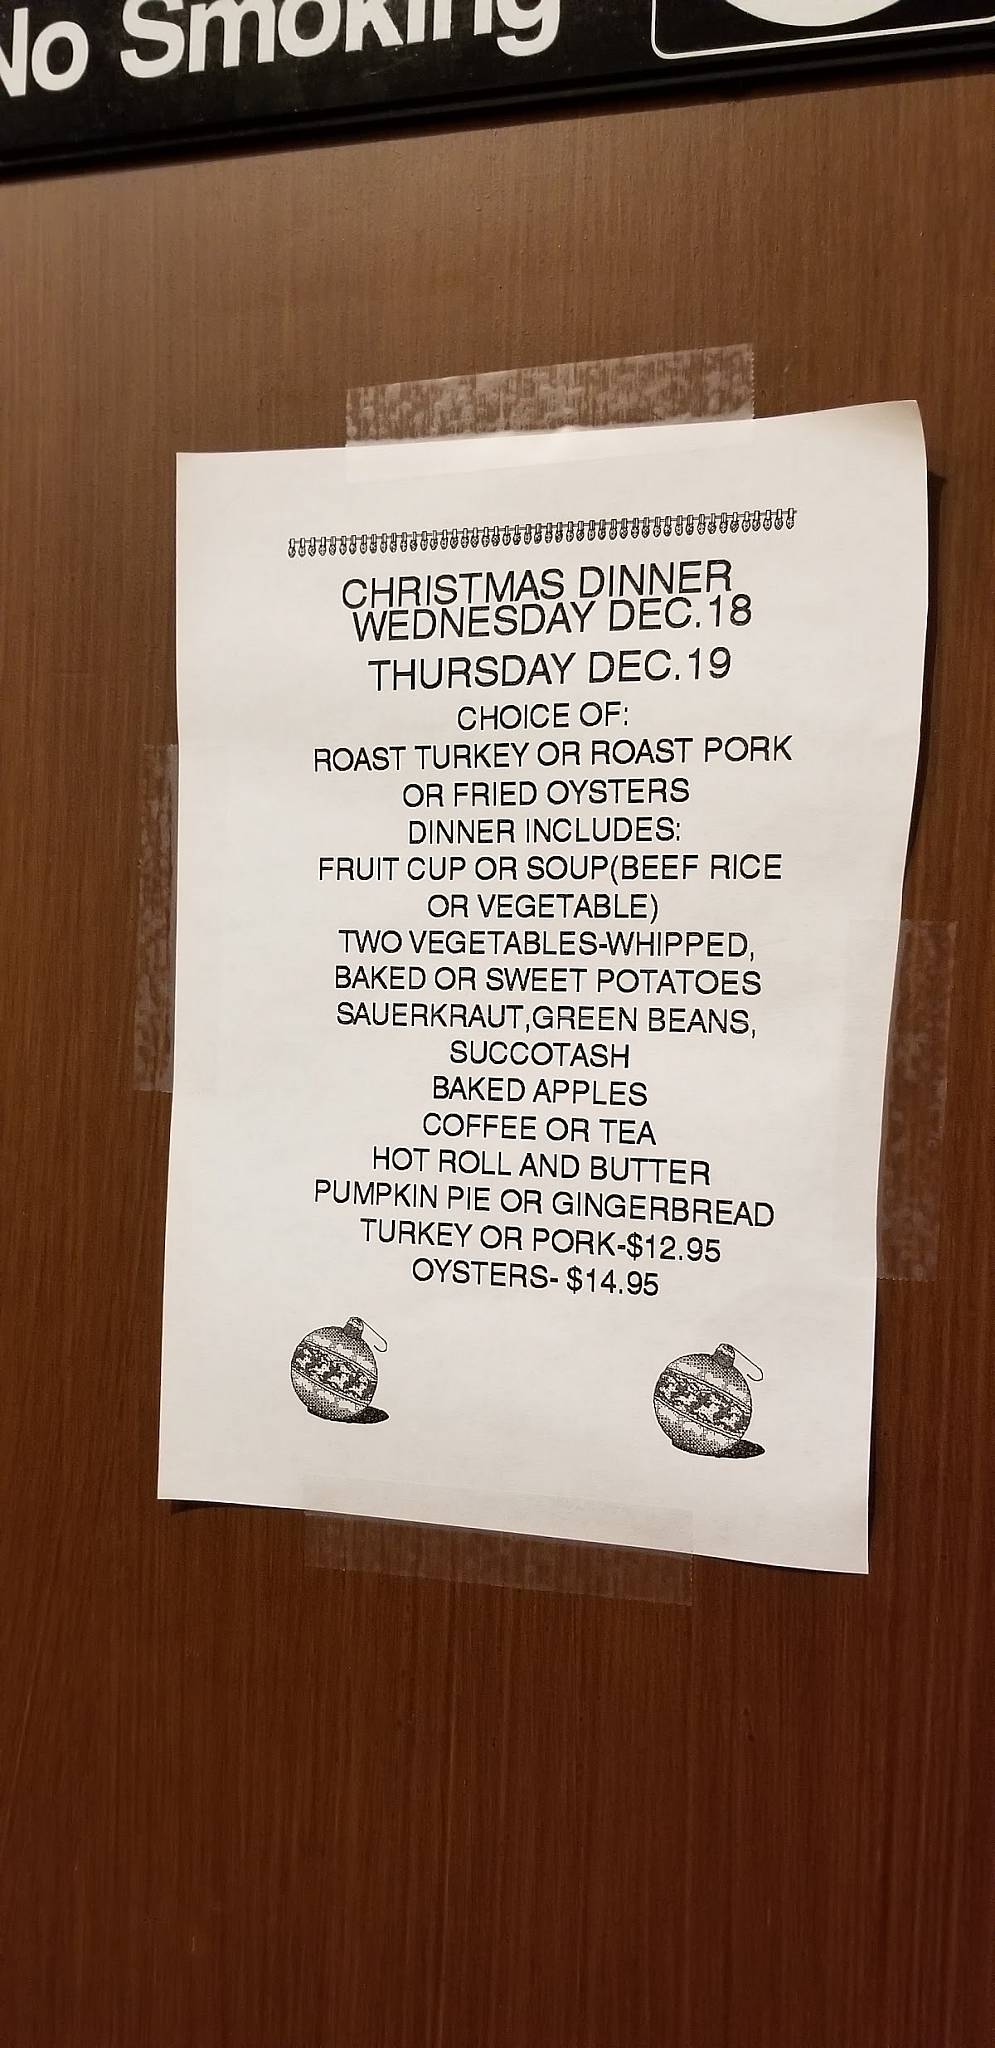 No Smoking
CHRISTMAS DINNER
WEDNESDAY DEC.18
THURSDAY DEC.19
CHOICE OF:
ROAST TURKEY OR ROAST PORK
OR FRIED OYSTERS
DINNER INCLUDES:
FRUIT CUP OR SOUP(BEEF RICE
OR VEGETABLE)
TWO VEGETABLES-WHIPPED,
BAKED OR SWEET POTATOES
SAUERKRAUT,GREEN BEANS,
SUCCOTASH
BAKED APPLES
COFFEE OR TEA
HOT ROLL AND BUTTER
PUMPKIN PIE OR GINGERBREAD
TURKEY OR PORK-$12.95
OYSTERS- $14.95